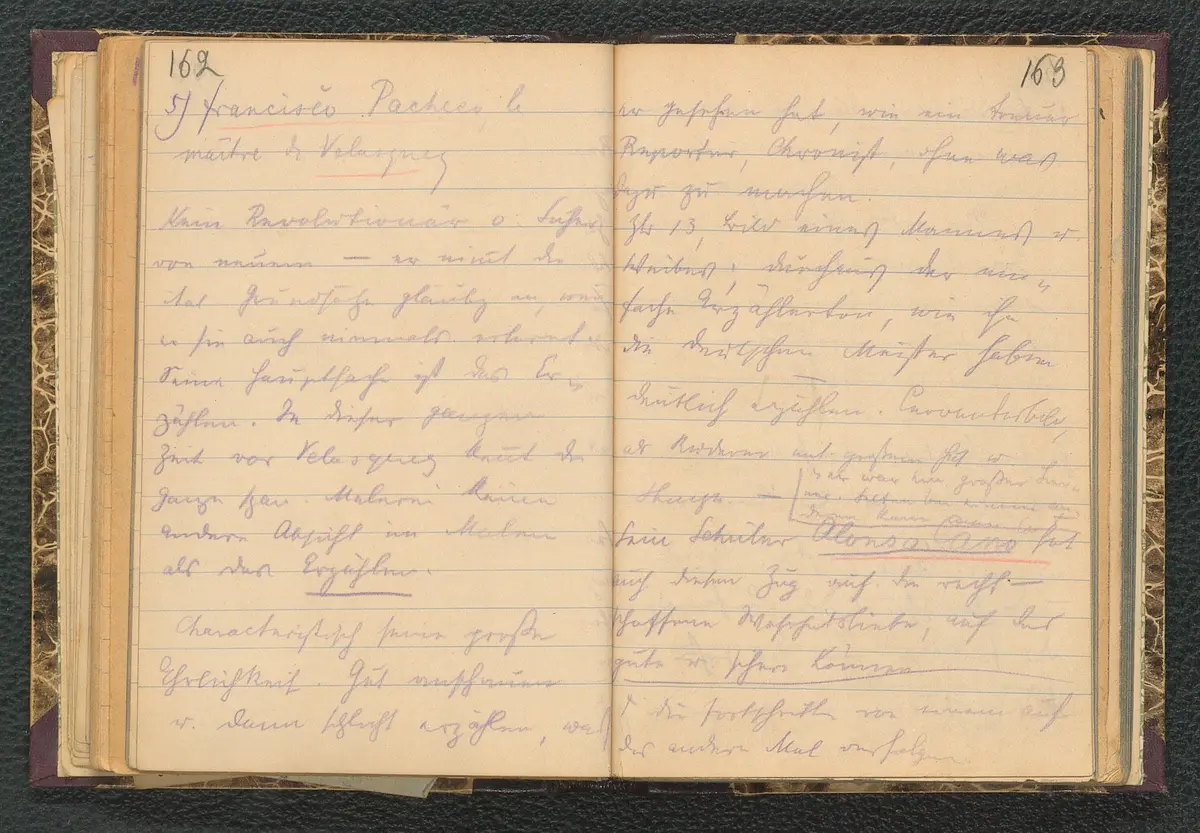 162
5) Francisco Pacheco le
maître de Velasquez
Kein Revolutionär o. Sucher
von neuem — er nimt die
ital Grundsätze gläubig an, wenn
er sie auch niemals erlernt.
Seine Hauptsache ist das Er-
zählen. In dieser ganzen
Zeit vor Velasquez kent die
ganze span. Malerei keine
andere Absicht im Malen
als das Erzählen.
Characteristisch seine große
Ehrlichkeit. Gut anschauen
u. dann schlicht erzählen, was
163
er gesehen hat, wie ein treuer
Reporter, Chronist, ohne was
dazu zu machen.
13, Bild eines Mannes u.
Weibes; durchaus der ein-
fache Erzählerton, wie ihn
die deutschen Meister haben
deutlich erzählen.
als Ruderer mit großem Hut u.
Stange. —
er war ein großer
Sein Schüler Alonso Cano hat
auch diesen Zug auf die recht-
schaffene Wahrheitsliebe, auf das
gute u. sichere Können
die Fortschritte von einem aufs
das andere Mal verfolgen.